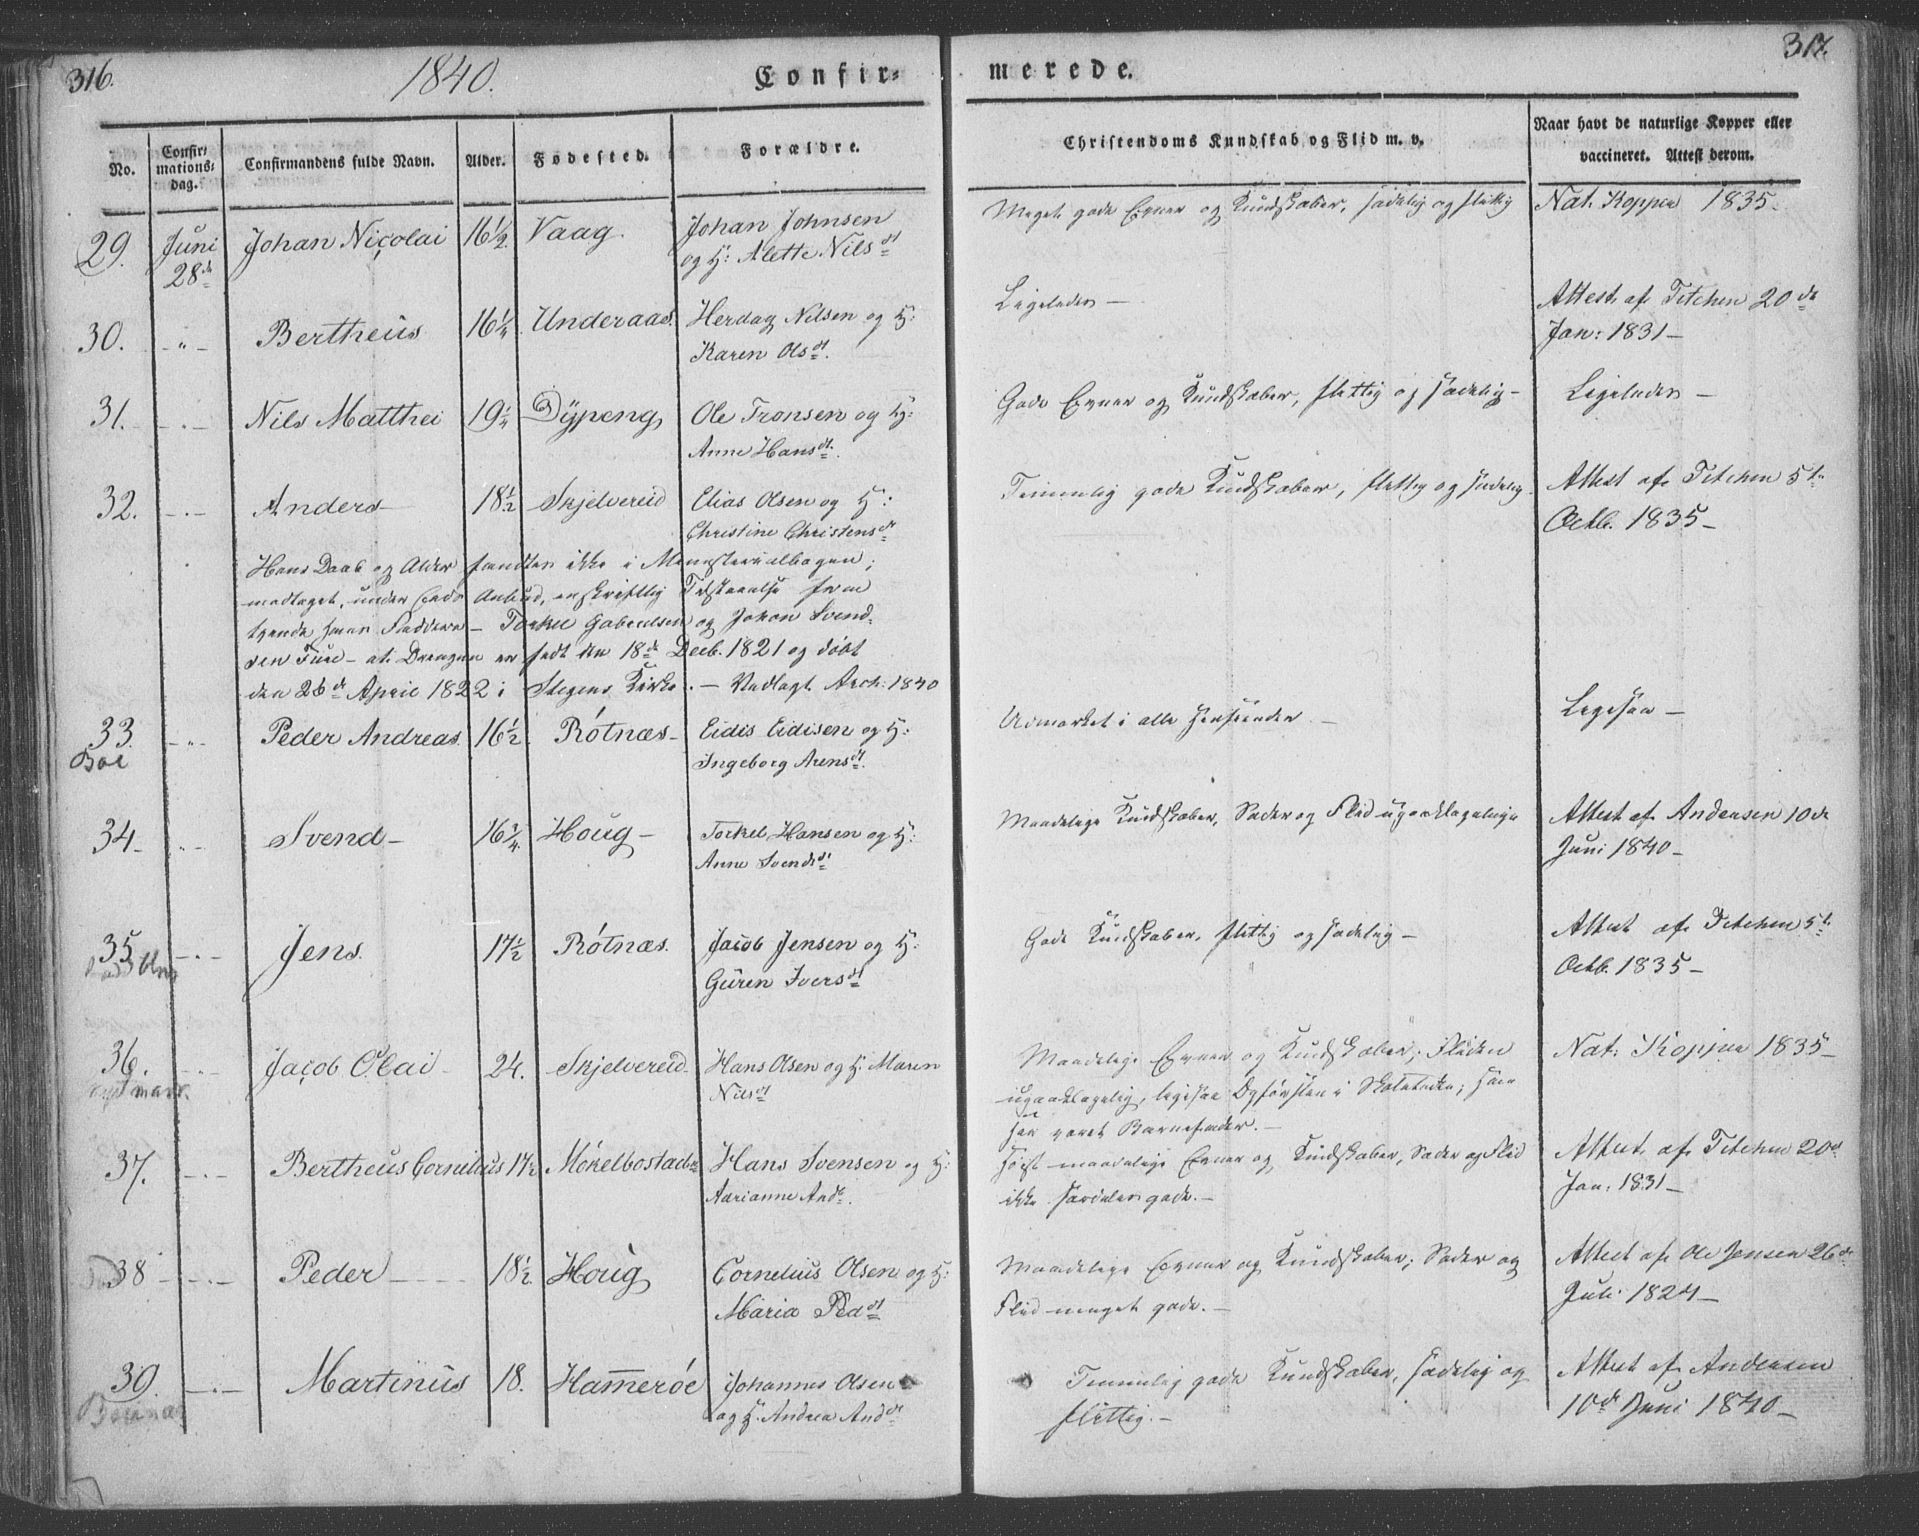 316.
1840.
Confir-
merede.
317.
No.
Confir-
mations-
dag.
Confirmandens fulde Navn.
Alder.
Fødested.
Forældre.
Christendoms Kundskab og Flid m. v.
Naar havt de naturlige Kopper eller
vaccineret. Attest derom.
29. Juni Johan Nicolai 16½ Vaag. Johan Johnsen
28de og H: Alette Nilsdt
Meget gode Evner og Kundskaber, sædelig og flittig
Nat. Kopper 1835.
30. -"- Bertheus 16¼ Underaas. Herdag Nilsen og H:
Karen Olsdt.
Ligeledes —
Attest af Titchen 20de
Jan: 1831 —
31. -"- Nils Matthei 19¼ Dÿpeng Ole Tronsen og H:
Anne Hansdt.
Gode Evner og Kundskaber, flittig og sædelig —
Ligeledes —
32. -"- Anders 18½ Skjelvereid Elias Olsen og H:
Christine Christensdt
Temmelig gode Kundskaber, flittig og sædelig.
Attest af Titchen 5te
Octb. 1835 —
Hans Daab og Alder fandtes ikke i Ministerialbogen;
modtaget, under Eeds Anbud, en skriftlig Tilstaaelse fra
tvende hans Faddere — Torkel Gabrielsen og Johan Svend-
sen Fure — at Drengen er født den 18de Decb. 1821 og døbt
den 26de April 1822 i Stegens Kirke. — Vedlagt Arch: 1840
33. -"- Peder Andreas 16½ Rótnæs — Eidis Eidisen og H:
Boe
Ingeborg Arensdt.
Udmærket i alle Henseender. —
Ligesaa —
34. -"- Svend — 16¾ Houg — Torkel Hansen og H:
Anne Svendsdt
Maadelige Kundskaber, Sæder og Flid upaaklagelige
Attest af Andersen 10de
Juni 1840 —
35. -"- Jens. 17½ Rótnæs. Jacob Jensen og H:
Guren Iversdt
Gode Kundskaber, flittig og sædelig —
Attest af Titchen 5te
Octb. 1835 —
36. -"- Jacob Olai — 24. Skjelvereid Hans Olsen og H: Maren
Nilsdt
Maadelige Evner og Kundskaber; Fliden
upaaklagelig, ligesaa Opførslen i Skoletiden; han
har været Barnefader. —
Nat: Kopper 1835 —
37. -"- Bertheus Cornelius 17½ Mókelbostad Hans Svensen og H:
Adrianne Andt.
Høist maadelige Evner og Kundskaber, Sæder og Flid
ikke særdeles gode. —
Attest af Titchen 20de
Jan: 1831 —
38 -"- Peder 18½ Houg Cornelius Olsen og H:
Maria Peddt
Maadelige Evner og Kundskaber; Sæder og
Flid meget gode. —
Attest af Ole Jensen 26de
Juli 1824 —
39. -"- Martinus 18. Hamerøe Johannes Olsen
og H. Andrea Anddt
Temmelig gode Kundskaber, sædelig og
flittig. —
Attest af Andersen
10de Juni 1840 —